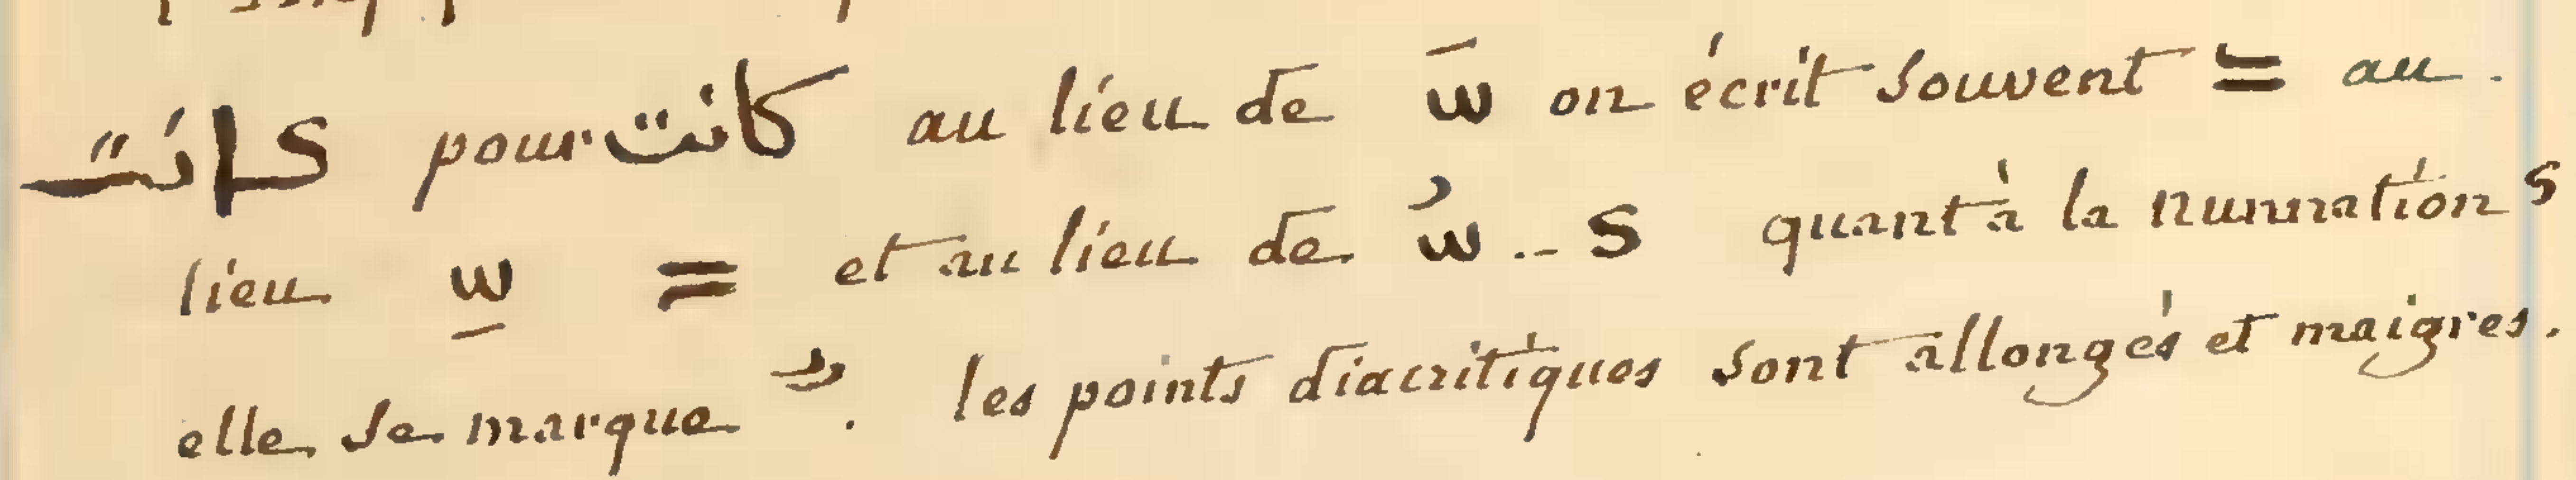 كانت pour كانت au lieu de  ّ َ on écrit souvent = au
lieu  ّ ِ = et au lieu de  ّ ُ .. S quant à la nunnation S
elle se marque . les points diacritiques sont allongés et maigres.